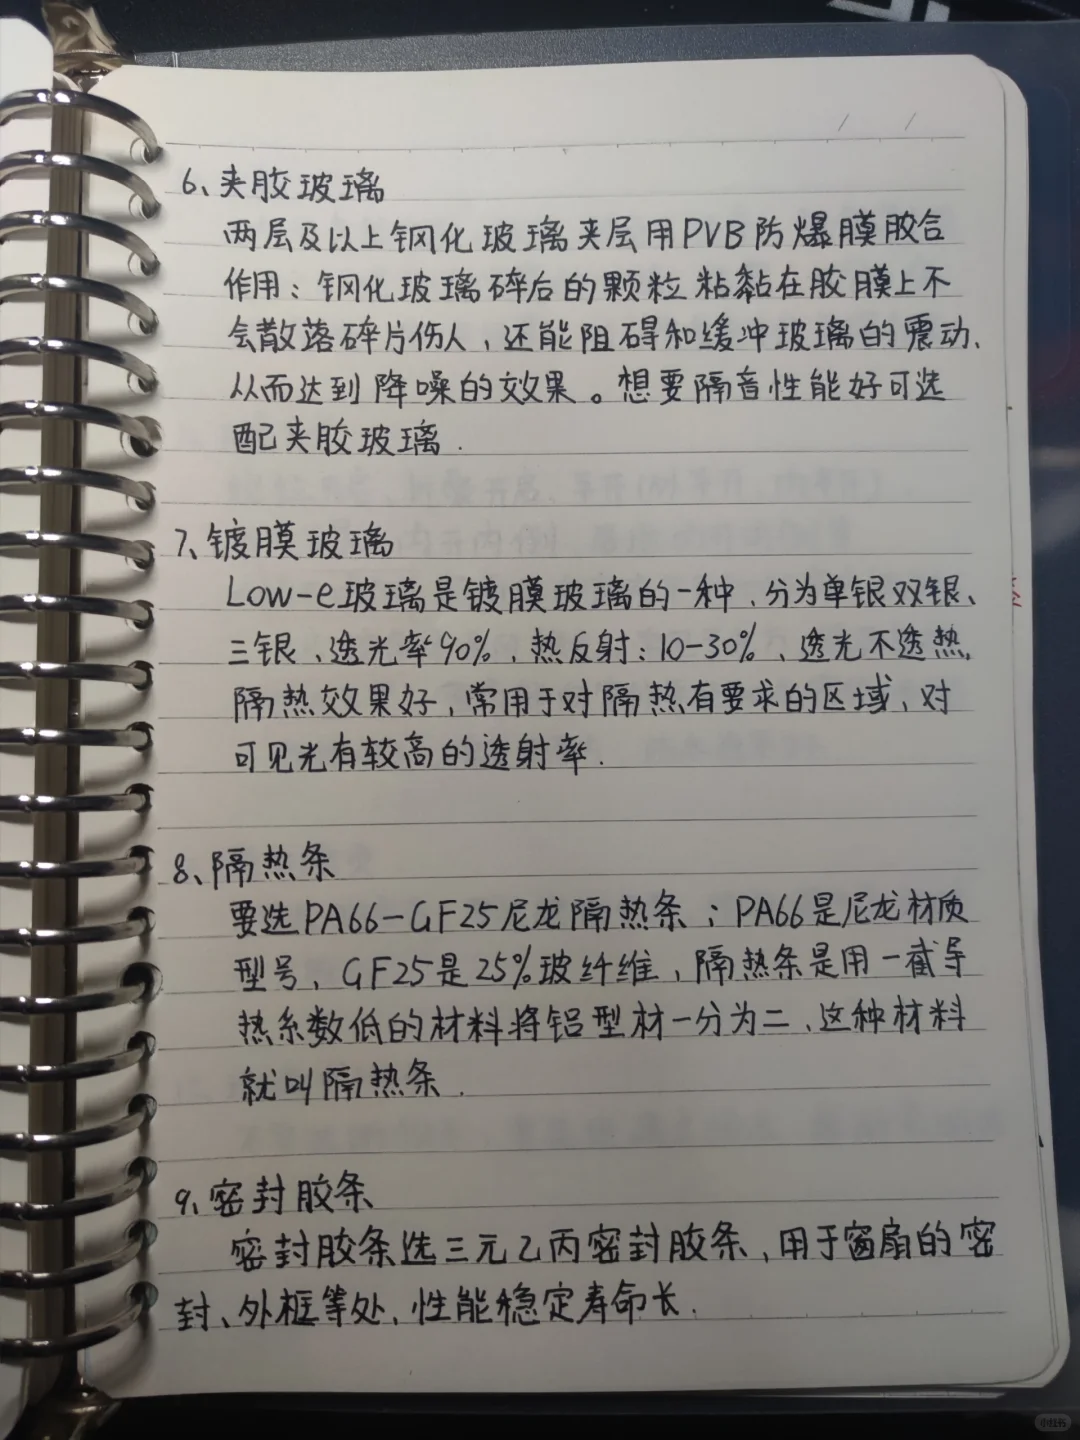 6、夹胶玻璃
两层及以上钢化玻璃夹层用PVB防爆膜胶合
作用：钢化玻璃碎后的颗粒粘黏在胶膜上不
会散落碎片伤人，还能阻碍和缓冲玻璃的震动、
从而达到降噪的效果。想要隔音性能好可选
配夹胶玻璃.
7、镀膜玻璃
Low-e玻璃是镀膜玻璃的一种、分为单银双银、
三银、透光率90%，热反射：10-30%、透光不透热，
隔热效果好，常用于对隔热有要求的区域，对
可见光有较高的透射率.
8、隔热条
要选PA66-GF25尼龙隔热条；PA66是尼龙材质
型号、GF25是25%玻纤维，隔热条是用一截导
热系数低的材料将铝型材一分为二、这种材料
就叫隔热条.
9、密封胶条
密封胶条选三元乙丙密封胶条，用于窗扇的密
封、外框等处、性能稳定寿命长.
小红书